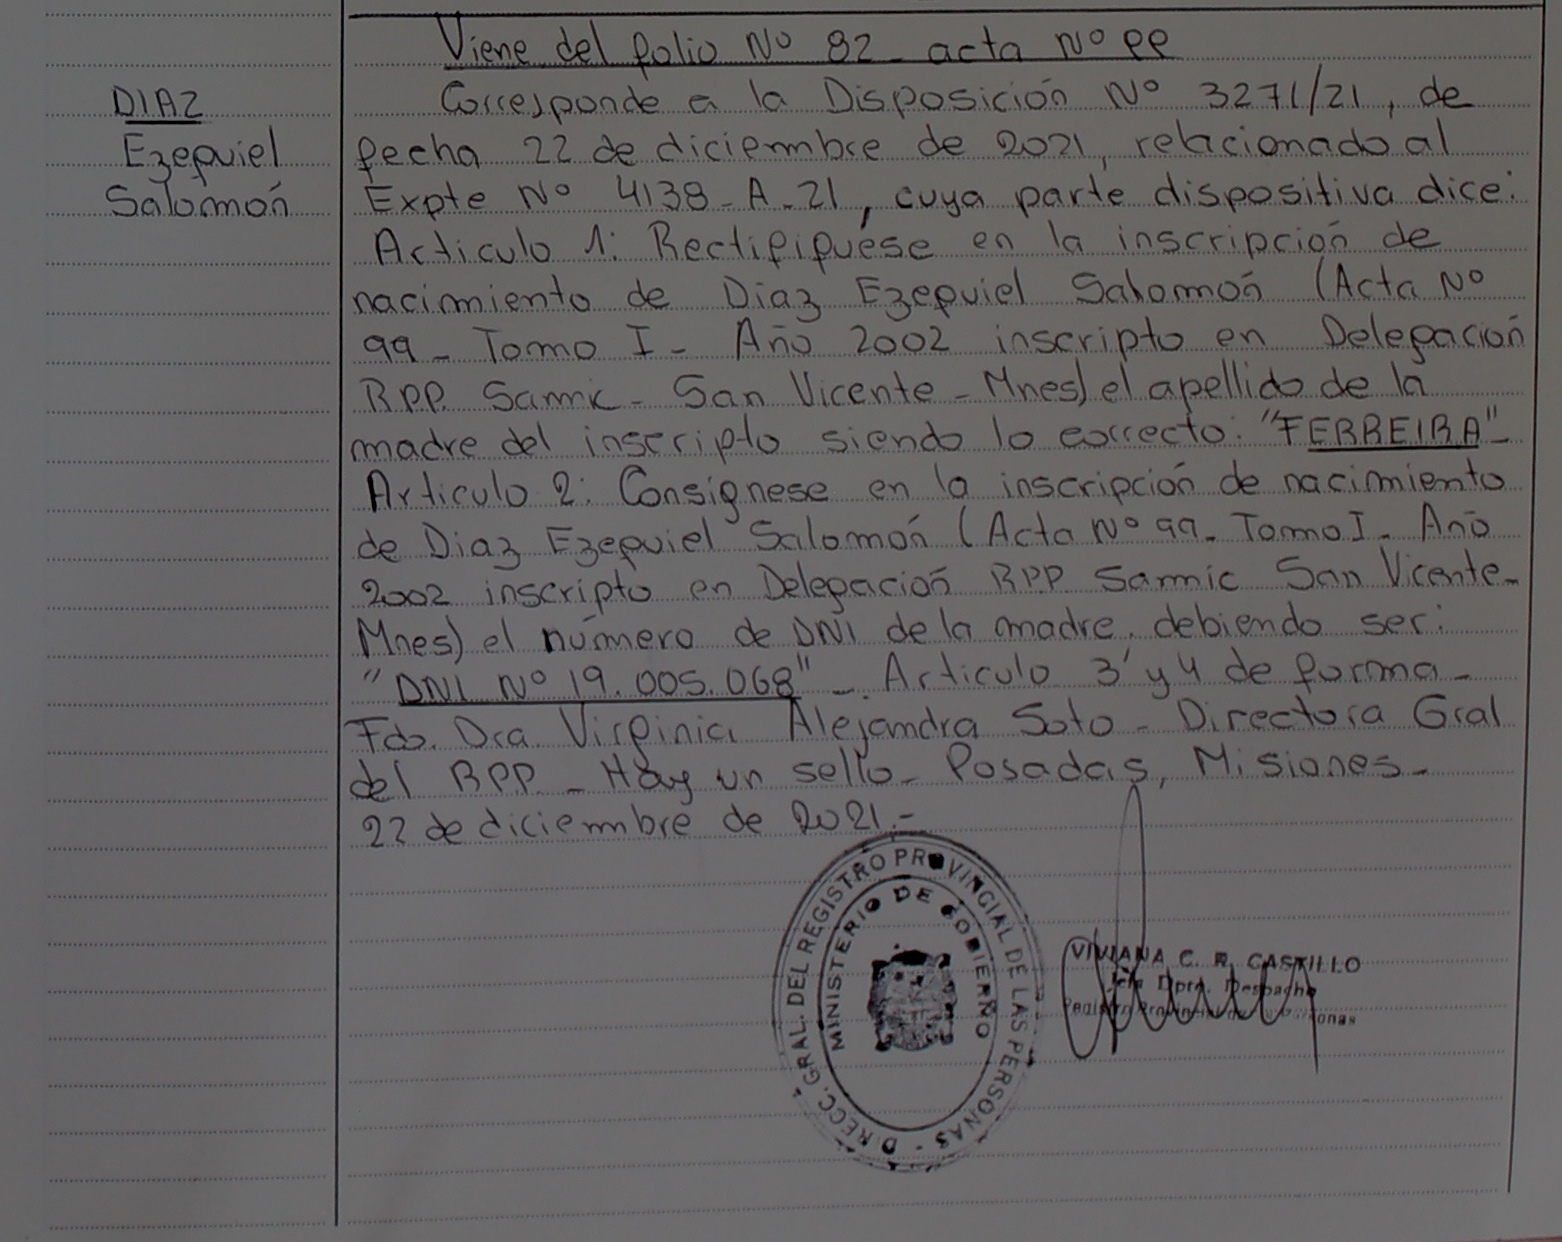 Viene del folio Nº 82 - acta Nº 99
DIAZ
Ezequiel
Salomón
Corresponde a la Disposición Nº 3271/21, de
fecha 22 de diciembre de 2021, relacionado al
Expte Nº 4138-A-21, cuya parte dispositiva dice:
Articulo 1: Rectifiquése en la inscripción de
nacimiento de Diaz Ezequiel Salomón (Acta Nº
99 - Tomo I - Año 2002 inscripto en Delegación
RPP. Samic - San Vicente - Mnes) el apellido de la
madre del inscripto siendo lo correcto: "FERREIRA"
Articulo 2: Consignese en la inscripción de nacimiento
de Diaz Ezequiel Salomón (Acta Nº 99 - Tomo I - Año
2002 inscripto en Delegación RPP Samic San Vicente -
Mnes) el número de DNI de la madre, debiendo ser:
"DNI Nº 19.005.068" -. Articulo 3 y 4 de forma -
Fdo. Dra. Virginia Alejandra Soto - Directora Gral
del RPP. - Hay un sello - Posadas, Misiones -
22 de diciembre de 2021.-
DIRECC. GRAL. DEL REGISTRO PROVINCIAL DE LAS PERSONAS -
MINISTERIO DE GOBIERNO
VIVIANA C. R. CASTILLO
Jefa Dpto. Despacho